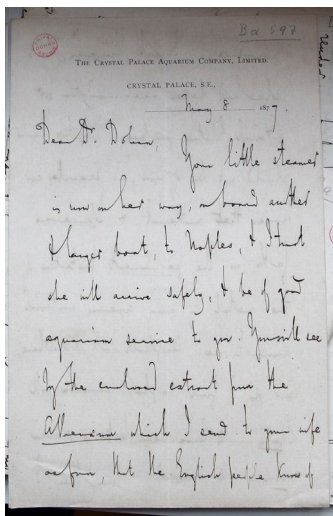 Ba 597
THE CRYSTAL PALACE AQUARIUM COMPANY, LIMITED
CRYSTAL PALACE, S.E.,
May 8 1877.
Dear Dr. Dohrn,
Your little steamer
is now on her way, on board another
& larger boat, to Naples, & I trust
she will arrive safely, & be of good
aquarium service to you. You will see
by the enclosed extract from the
Athenæum which I send to your wife
as from, that the English people know of